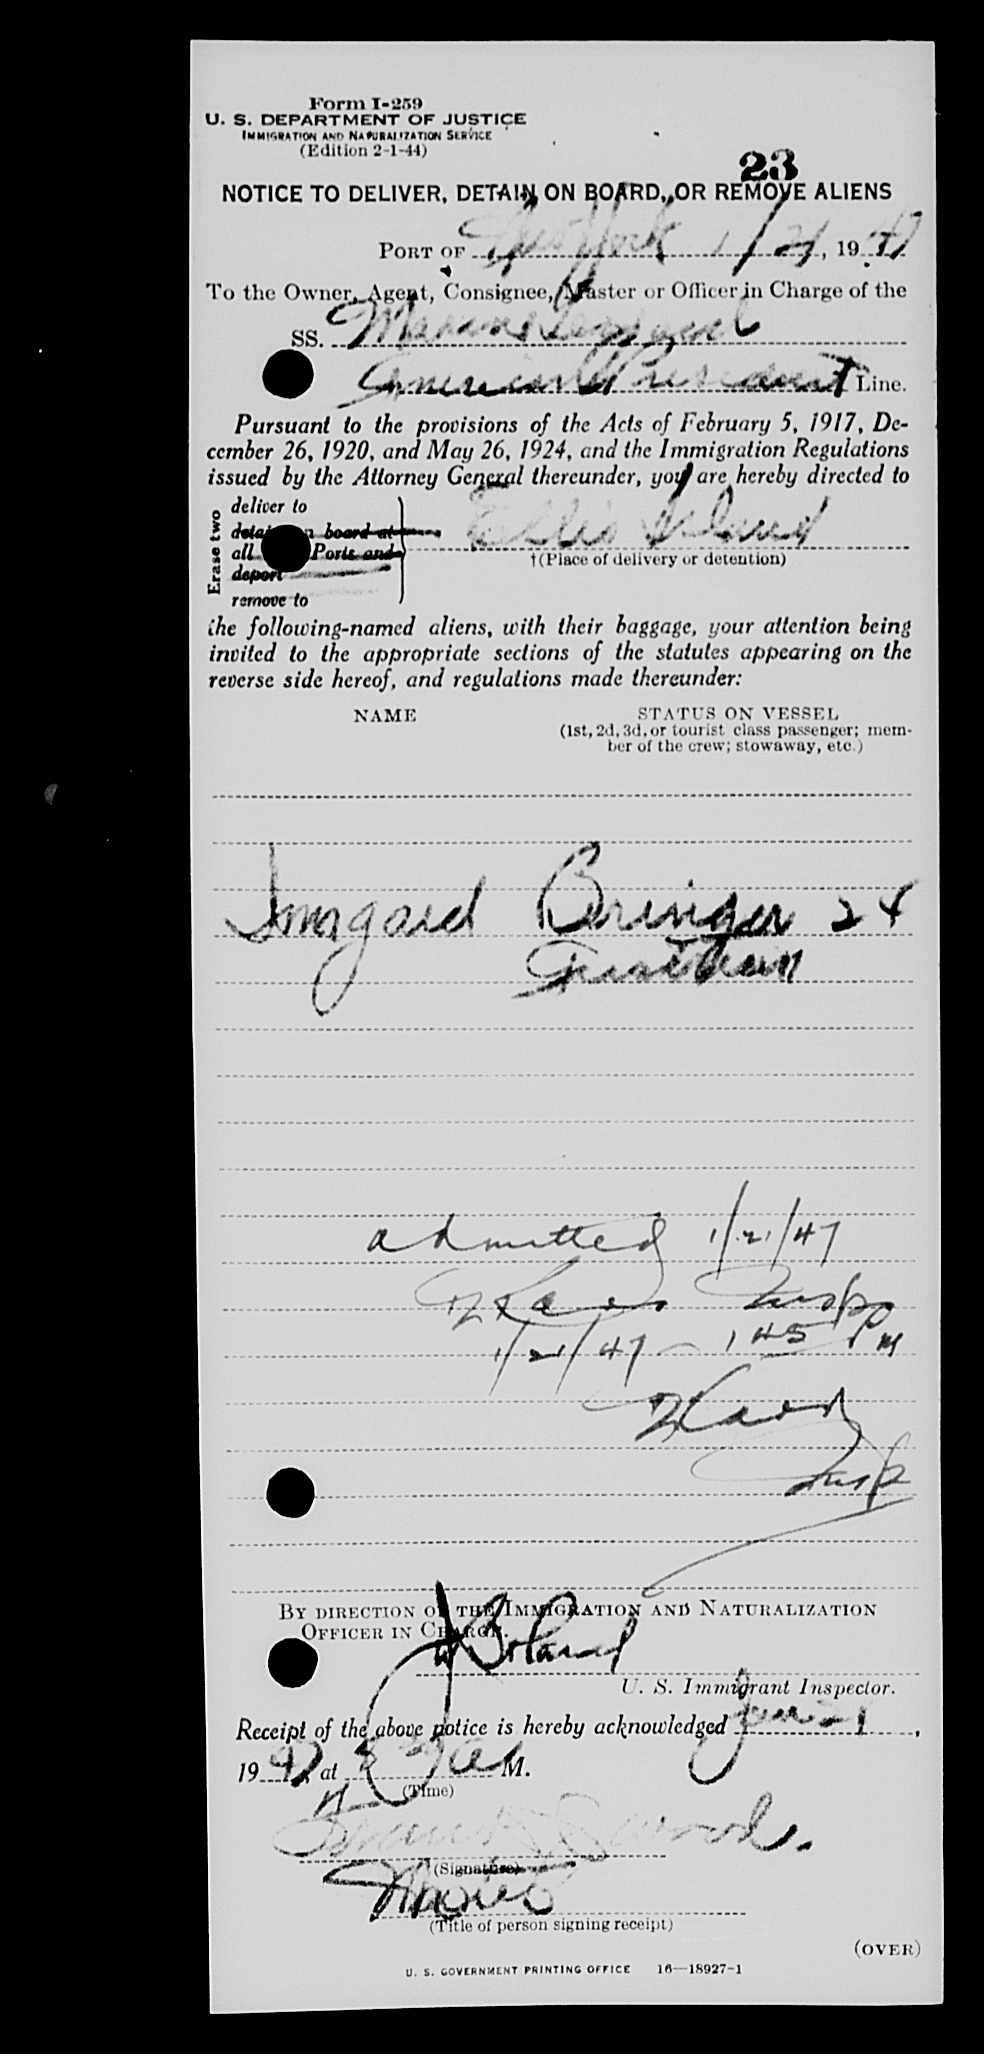 Form I-259
U. S. DEPARTMENT OF JUSTICE
IMMIGRATION AND NATURALIZATION SERVICE
(Edition 2-1-44)
23
NOTICE TO DELIVER, DETAIN ON BOARD, OR REMOVE ALIENS
PORT OF New York 1/21, 1947
To the Owner, Agent, Consignee, Master or Officer in Charge of the
SS. Marine
American President Line.
Pursuant to the provisions of the Acts of February 5, 1917, De-
cember 26, 1920, and May 26, 1924, and the Immigration Regulations
issued by the Attorney General thereunder, you are hereby directed to
Erase two
deliver to
detain on board at
all Ports and
deport
remove to
Ellis Island
†(Place of delivery or detention)
the following-named aliens, with their baggage, your attention being
invited to the appropriate sections of the statutes appearing on the
reverse side hereof, and regulations made thereunder:
NAME STATUS ON VESSEL
(1st, 2d, 3d, or tourist class passenger; mem-
ber of the crew; stowaway, etc.)
Irmgard Beringer 24
admitted 1/21/47
Insp
1/21/47 - 1 45 PM
Insp
BY DIRECTION OF THE IMMIGRATION AND NATURALIZATION
OFFICER IN CHARGE.
Boland
U. S. Immigrant Inspector.
Receipt of the above notice is hereby acknowledged Jan 21,
1947, at M.
(Time)
Frank
(Signature)
(Title of person signing receipt)
(OVER)
U. S. GOVERNMENT PRINTING OFFICE 16—18927-1